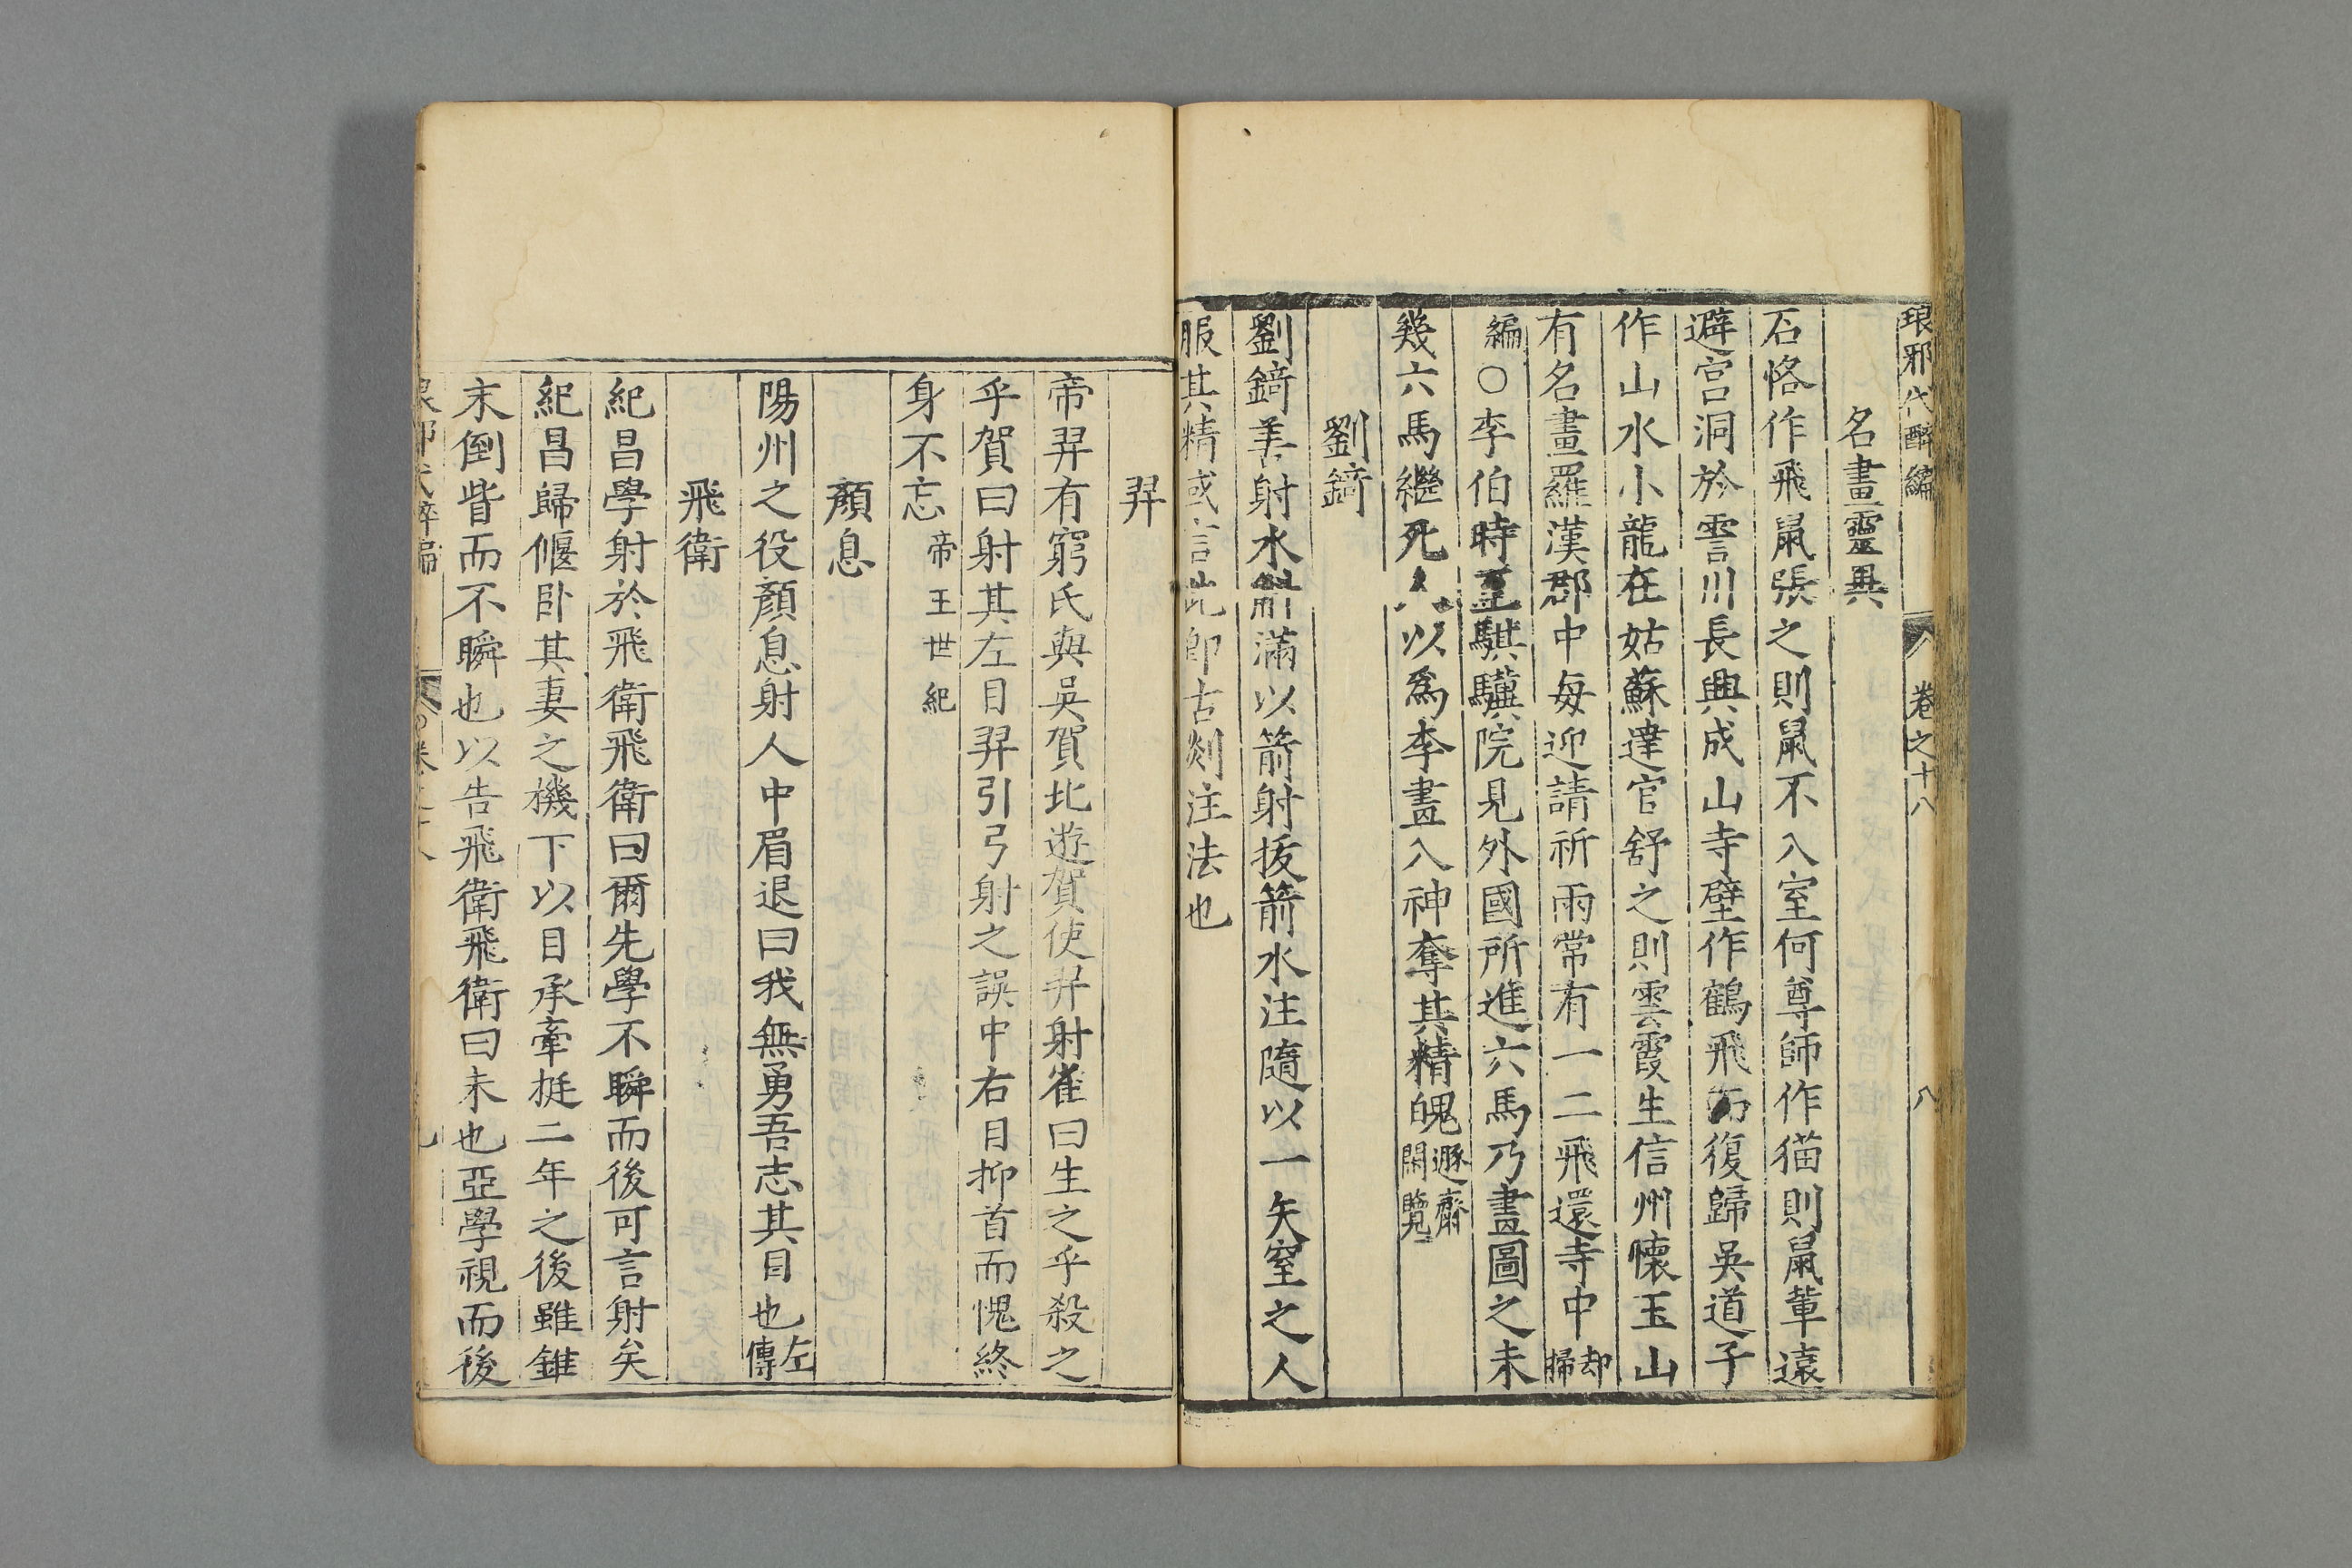 琅邪代醉編 卷之十八 八
名畫靈異
石恪作飛鼠張之則鼠不入室何尊師作猫則鼠輩遠
避宮洞於霅川長興成山寺壁作鶴飛而復歸吳道子
作山水小龍在姑蘇達官舒之則雲霞生信州懷玉山
有名畫羅漢郡中每迎請祈雨常有一二飛還寺中却掃
編○李伯時至騏驥院見外國所進六馬乃畫圖之未
幾六馬繼死人以為李畫入神奪其精魄遯齋閑覽
劉錡
劉錡善射水斛滿以箭射拔箭水注隨以一矢窒之人
服其精或言此即古剡注法也
羿
帝羿有窮氏與吳賀北遊賀使羿射雀曰生之乎殺之
乎賀曰射其左目羿引弓射之誤中右目抑首而愧終
身不忘帝王世紀
顏息
陽州之役顏息射人中眉退曰我無勇吾志其目也左傳
飛衛
紀昌學射於飛衛飛衛曰爾先學不瞬而後可言射矣
紀昌歸偃臥其妻之機下以目承牽挺二年之後雖錐
末倒眥而不瞬也以告飛衛飛衛曰未也亞學視而後